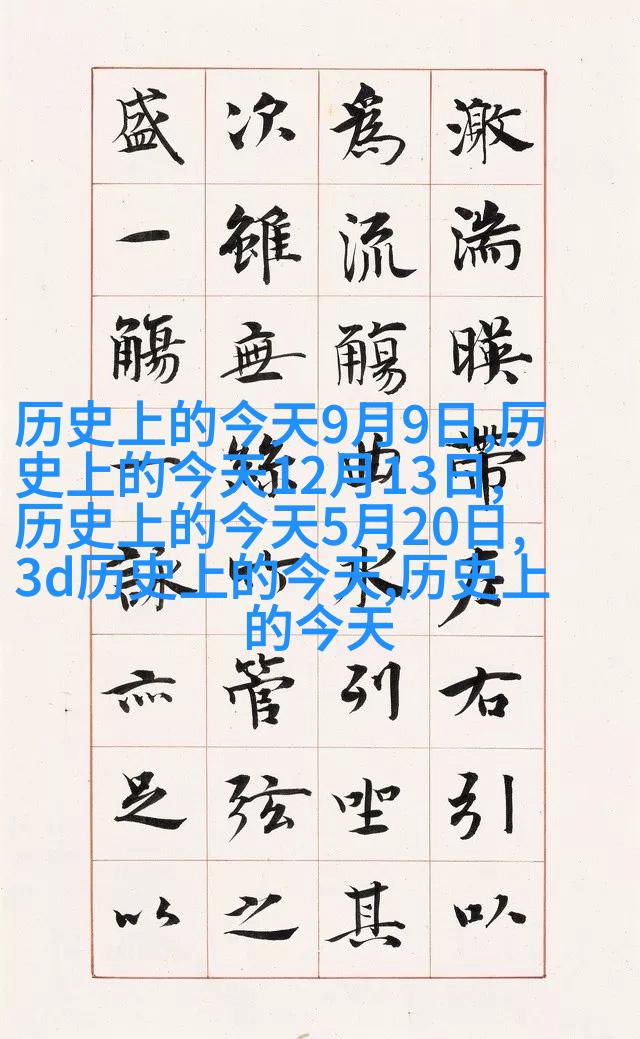 激湍暎帶左右引以
為流觴曲水列坐其
次雖無絲竹管弦之
盛一觴一詠亦足以
历史上的今天9月9日,历
史上的今天12月13日,
历史上的今天5月20日,
3d历史上的今天,历史上
的今天